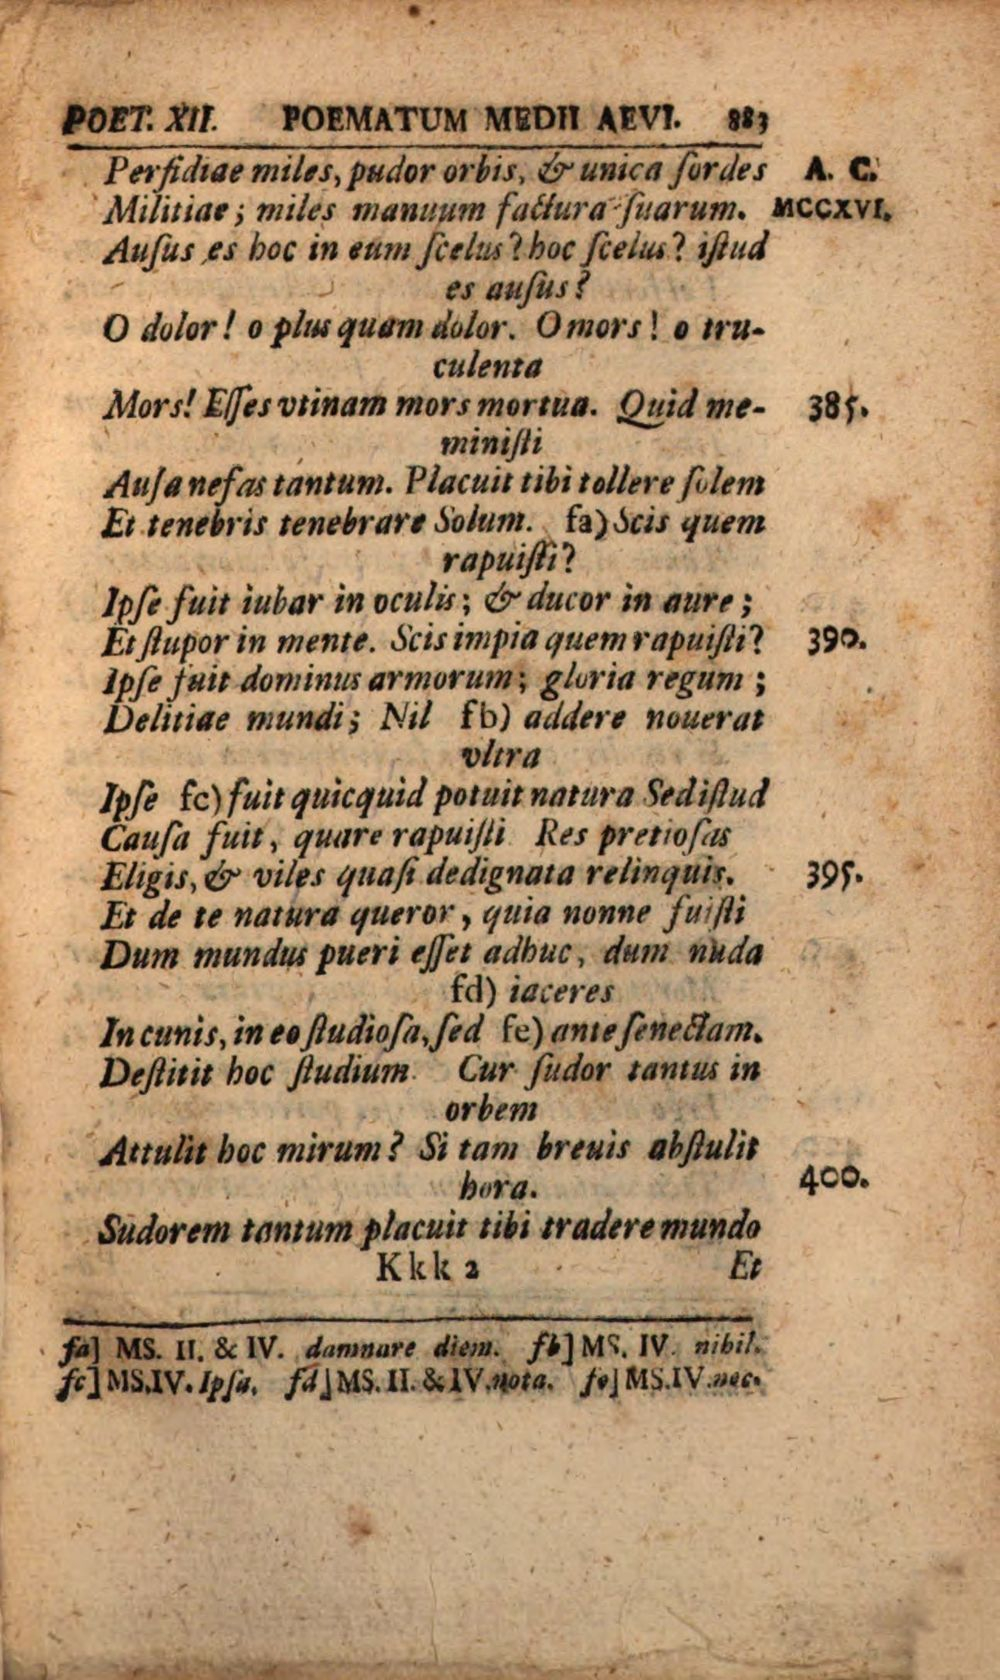 POET. XII. POEMATUM MEDII AEVI. 883
Perfidiae miles, pudor orbis, & unica ſordes A. C.
Militiae; miles manuum factura ſuarum. MCCXVI.
Auſus es hoc in eum ſcelus? hoc ſcelus? iſtud
es auſus?
O dolor! o plus quam dolor. O mors! o tru-
culenta
Mors! Eſſes vtinam mors mortua. Quid me- 385.
miniſti
Auſa nefas tantum. Placuit tibi tollere ſolem
Et tenebris tenebrare Solum. fa) Scis quem
rapuiſti?
Ipſe fuit iubar in oculis; & ducor in aure;
Et ſtupor in mente. Scis impia quem rapuiſti? 390.
Ipſe fuit dominus armorum; gloria regum;
Delitiae mundi; Nil fb) addere nouerat
vltra
Ipſe fc) fuit quicquid potuit natura Sed iſtud
Cauſa fuit, quare rapuiſti Res pretioſas
Eligis, & viles quaſi dedignata relinquis. 395.
Et de te natura queror, quia nonne fuiſti
Dum mundus pueri eſſet adhuc, dum nuda
fd) iaceres
In cunis, in eo ſtudioſa, ſed fe) ante ſenectam.
Deſtitit hoc ſtudium. Cur ſudor tantus in
orbem
Attulit hoc mirum? Si tam breuis abſtulit
hora. 400.
Sudorem tantum placuit tibi tradere mundo
Kkk 2 Et
fa] MS. II. & IV. damnare diem. fb] MS. IV. nihil.
fc] MS.IV. Ipſa. fd] MS. II. & IV. nota. fe] MS.IV. nec.